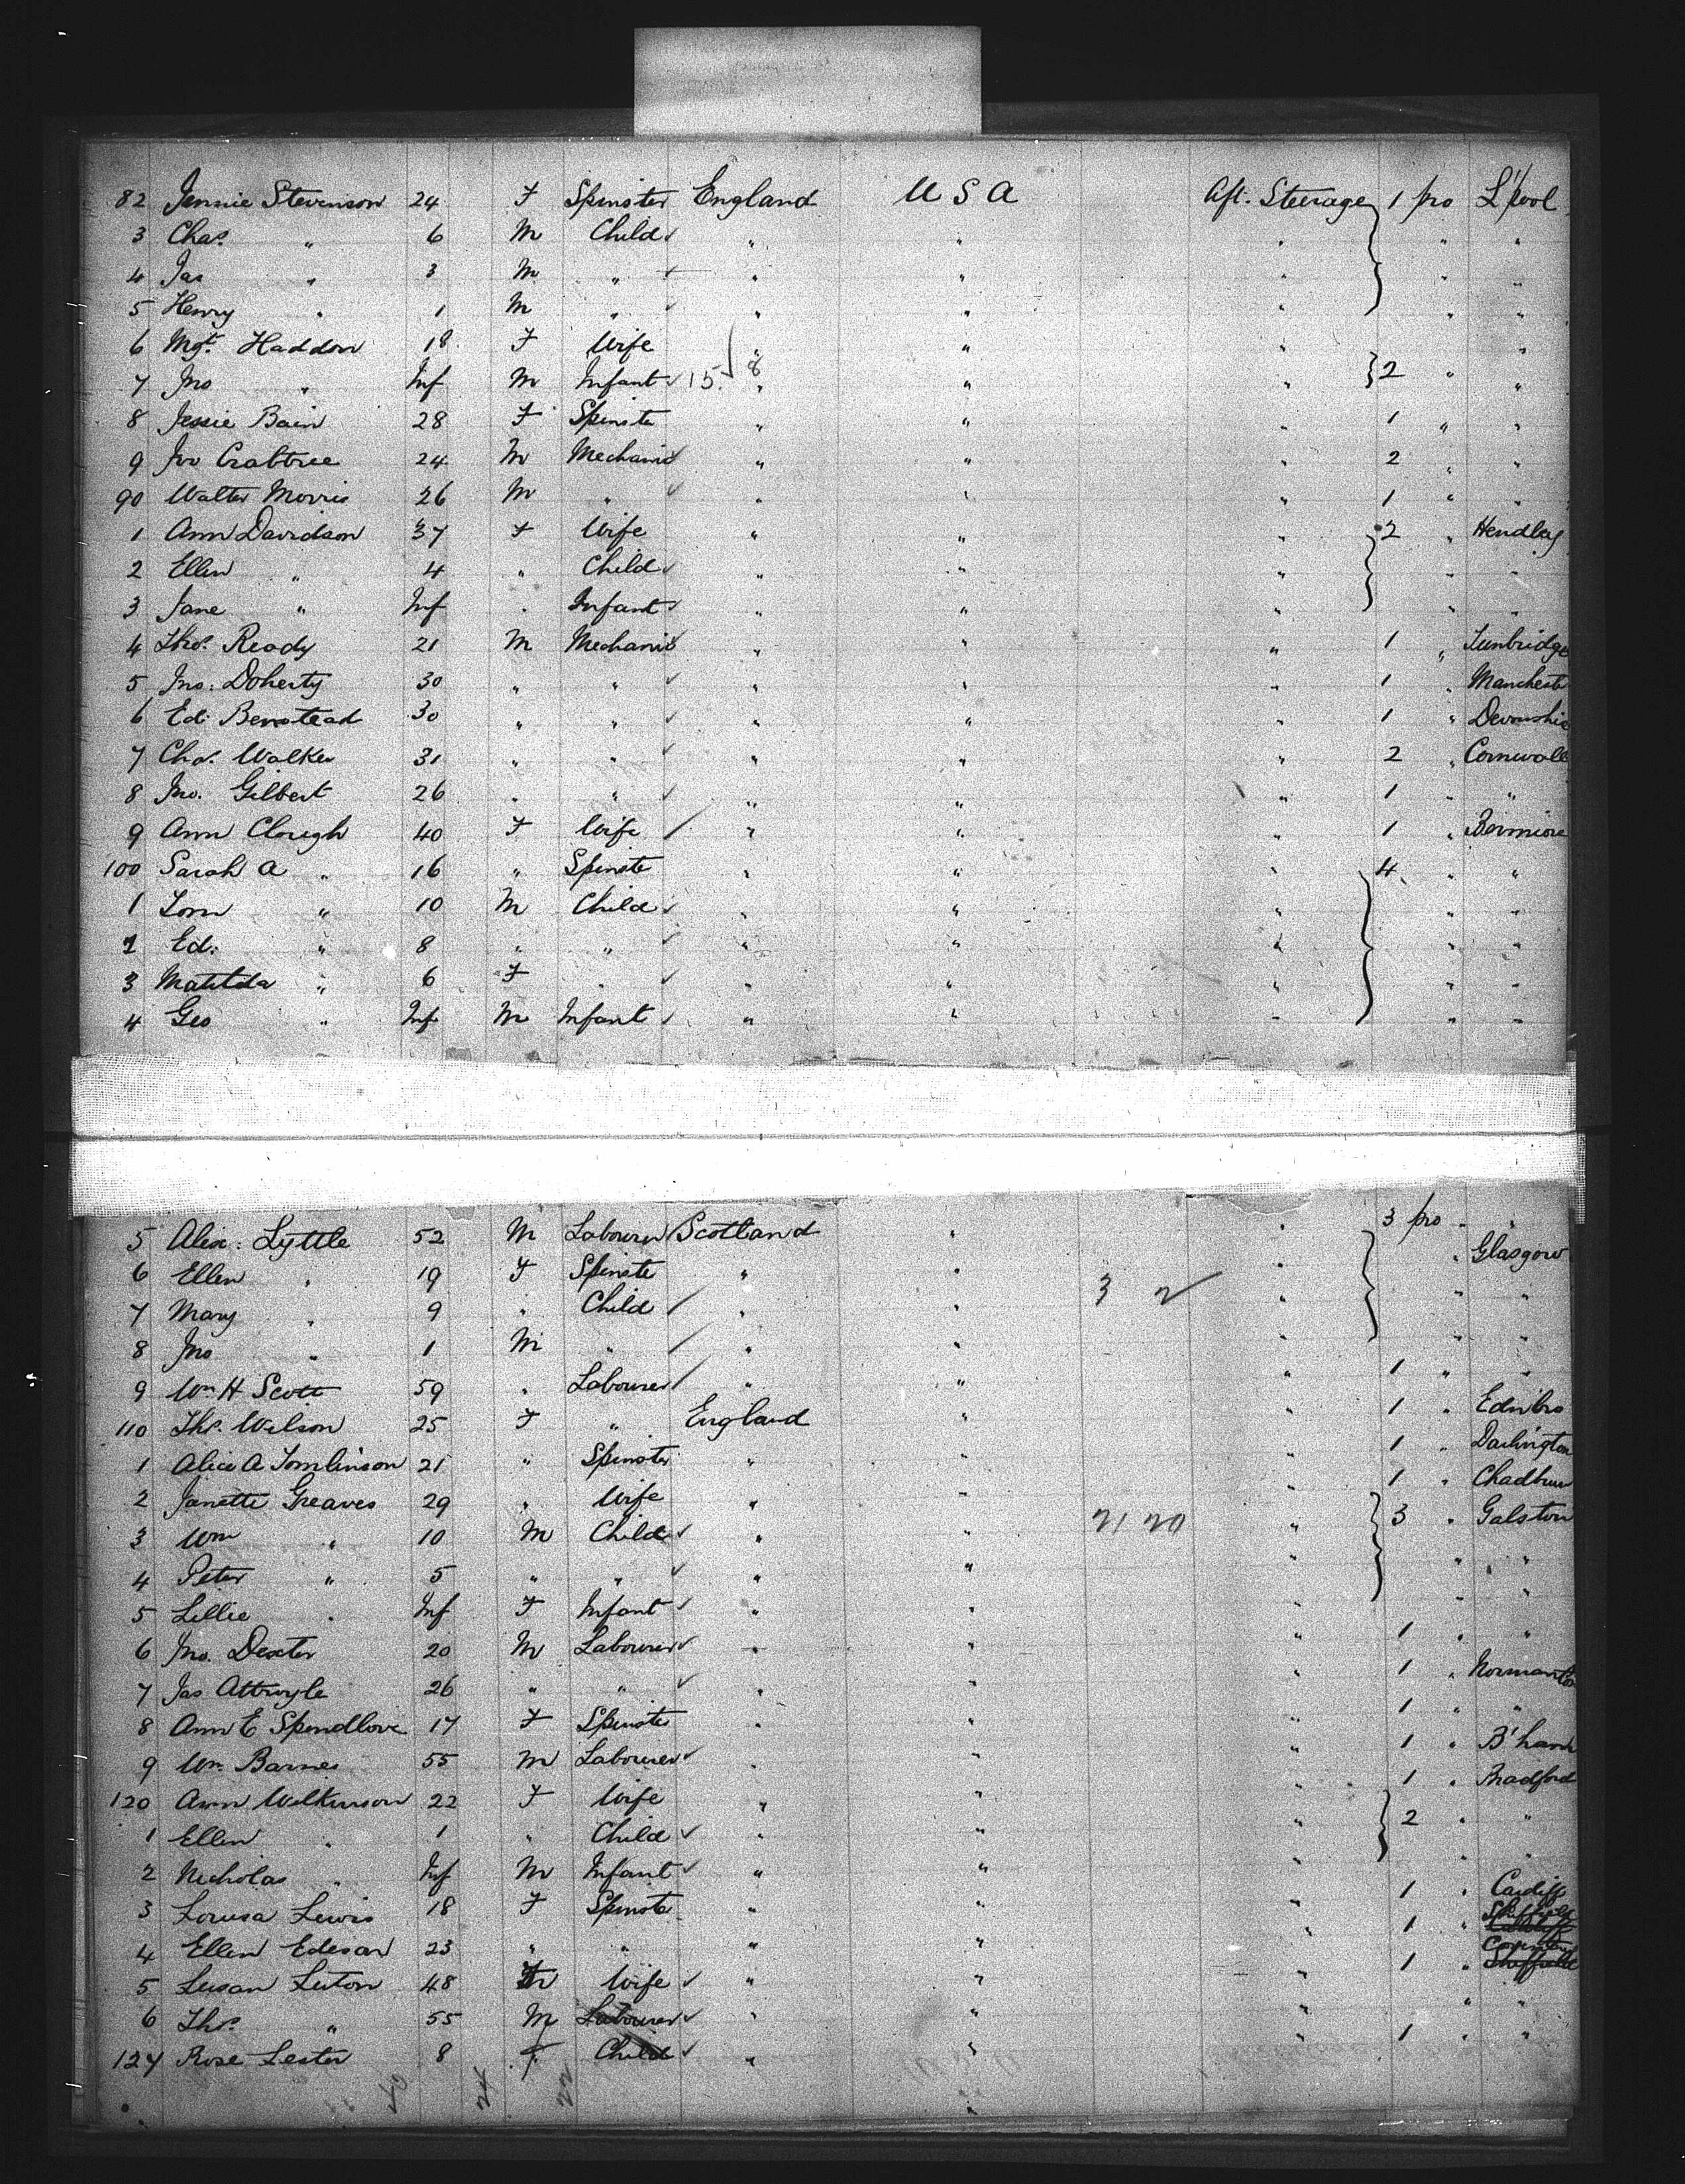 82 Jennie Stevenson 24 F Spinster England U S A Aft. Steerage 1 pro L'pool
3 Chas. " 6 M Child " " " " "
4 Jas " 3 M " " " " " "
5 Henry " 1 M " " " " " "
6 Mgt. Haddon 18 F Wife " " " "
7 Jno " Inf M Infant 15 8 " " " 2 " "
8 Jessie Bain 28 F Spinste " " " 1 " "
9 Jno Crabtree 24 M Mechanic " " " 2 " "
90 Walter Morris 26 M " " " " 1 " "
1 Ann Davidson 37 F Wife " " " 2 " Hendley
2 Ellen " 4 " Child " " " " "
3 Jane " Inf " Infant " " " " "
4 Thos. Ready 21 M Mechanic " " " 1 " Tunbridge
5 Jno. Doherty 30 " " " " " 1 " Manchest
6 Ed. Benstead 30 " " " " " 1 " Devonshi
7 Chas. Walker 31 " " " " " 2 " Cornwall
8 Jno. Gilbert 26 " " " " " 1 " "
9 Ann Clough 40 F Wife " " " 1 "
100 Sarah A " 16 " Spinste " " " 4 " "
1 Tom " 10 M Child " " " " "
2 Ed. " 8 " " " " " " "
3 Matilda " 6 F " " " " " "
4 Geo " Inf M Infant " " " " "
5 Alex. Lyttle 52 M Labourer Scotland " " 3 pro " "
6 Ellen " 19 F Spinste " " " " Glasgow
7 Mary " 9 " Child " " 3 2 " " "
8 Jno " 1 M " " " " " "
9 Wm H Scott 59 " Labourer " " " 1 " "
110 Thos. Wilson 25 F " England " " 1 " Edinbro
1 Alice A Tomlinson 21 " Spinster " " " 1 " Darlington
2 Janette Greaves 29 " Wife " " " 1 "
3 Wm " 10 M Child " " 21 20 " 3 " Galston
4 Peter " 5 " " " " " " "
5 Lillie " Inf F Infant " " " " "
6 Jno. Dexter 20 M Labourer " " " 1 "
7 Jas Attwyle 26 " " " " " 1 " Normanton
8 Ann E Spendlove 17 F Spinster " " " 1 " "
9 Wm. Barnes 55 M Labourer " " " 1 " B'ham
120 Ann Wilkinson 22 F Wife " " " 1 " Bradford
1 Ellen " 1 " Child " " " 2 " "
2 Nicholas " Inf M Infant " " " "
3 Louisa Lewis 18 F Spinste " " " 1 " Cardiff
4 Ellen Edesan 23 " " " " " 1 " Sheffield
5 Susan Luton 48 F Wife " " " 1 " Sheffield
6 Thos. " 55 M Labourer " " " " "
127 Rose Lester 8 F Child " " " 1 " "
40 24 22